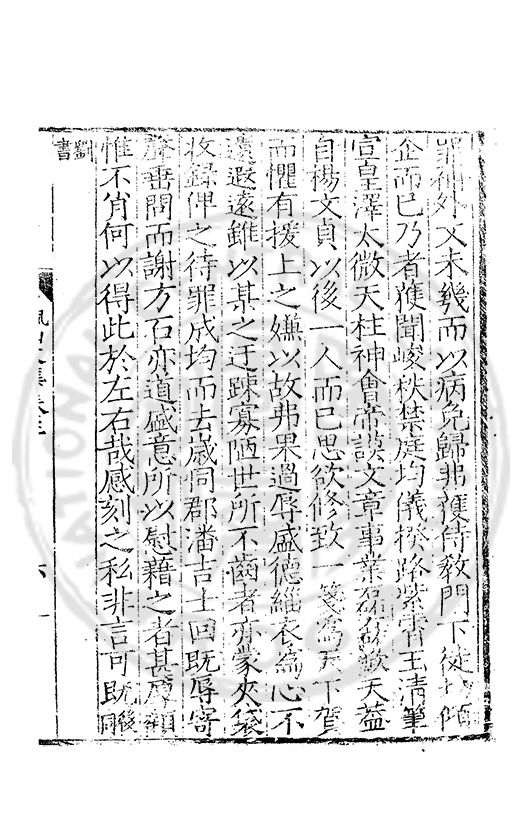 罪補外又未幾而以病免歸弗獲侍教門下徒切傾
企而已乃者獲聞峻秩禁庭均儀揆路紫霄玉清筆
宣皇澤太微天柱神會帝謨文章事業磊磊欽天蓋
自楊文貞以後一人而已思欲修致一箋爲天下賀
而懼有援上之嫌以故弗果過辱盛德維衣爲心不
遺遐遠雖以某之迂疎寡陋世所不齒者亦蒙夾袋
收錄俾之待罪成均而去歲同郡潘吉士回既辱寄
聲垂問而謝方石亦道盛意所以慰藉之者甚厚顧
惟不肖何以得此於左右哉感刻之私非言可既後同
劉書
集卷
六